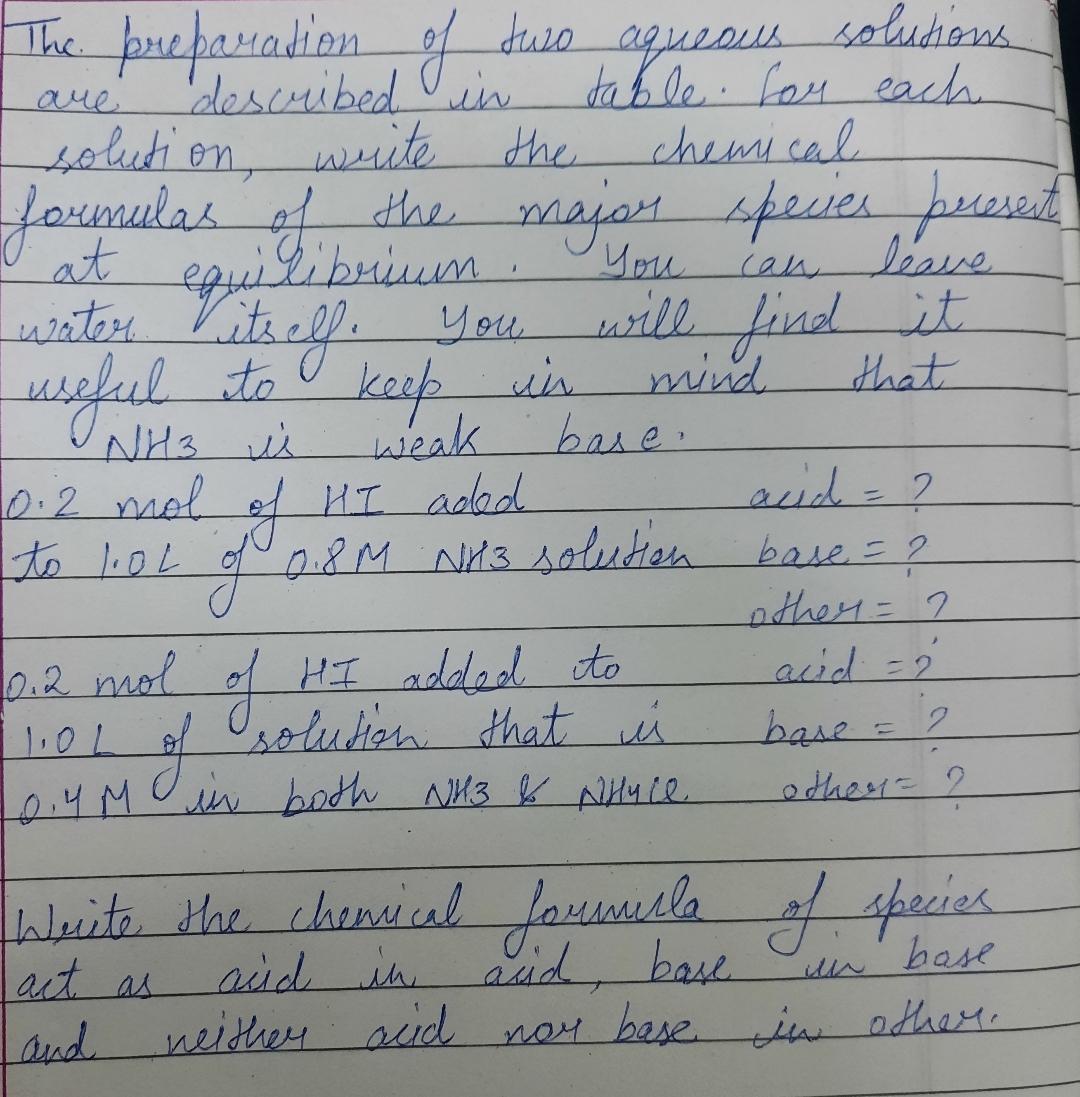 The preparation of two aqueous solutions
are described in table. For each
solution, write the chemical
formulas of the major species present
at equilibrium. You can leave
water itself. You will find it
useful to keep in mind that
NH3 is weak base.
0.2 mol of HI aded acid = ?
to 1.0L of 0.8M NH3 solution base = ?
other = ?
0.2 mol of HI added to acid = ?
1.0 L of solution that is base = ?
0.4 M in both NH3 & NH4Cl. other = ?
Write the chemical formula of species
act as acid in acid, base in base
and neither acid nor base in other.